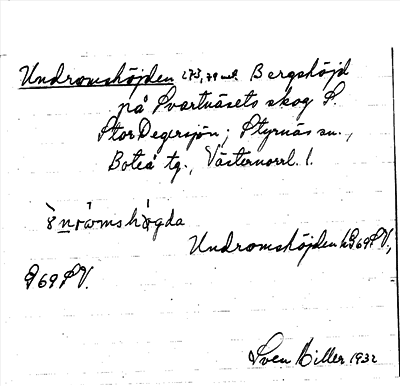 Undromshöjden 273,79 m. Bergshöjd
på Svartnäsets skog S.
Stor Degersjön; Styrnäs sn.,
Boteå tg., Västernorrl. l.
Undromshöjden h 969 SV,
969 SV.
Sven Hiller 1932